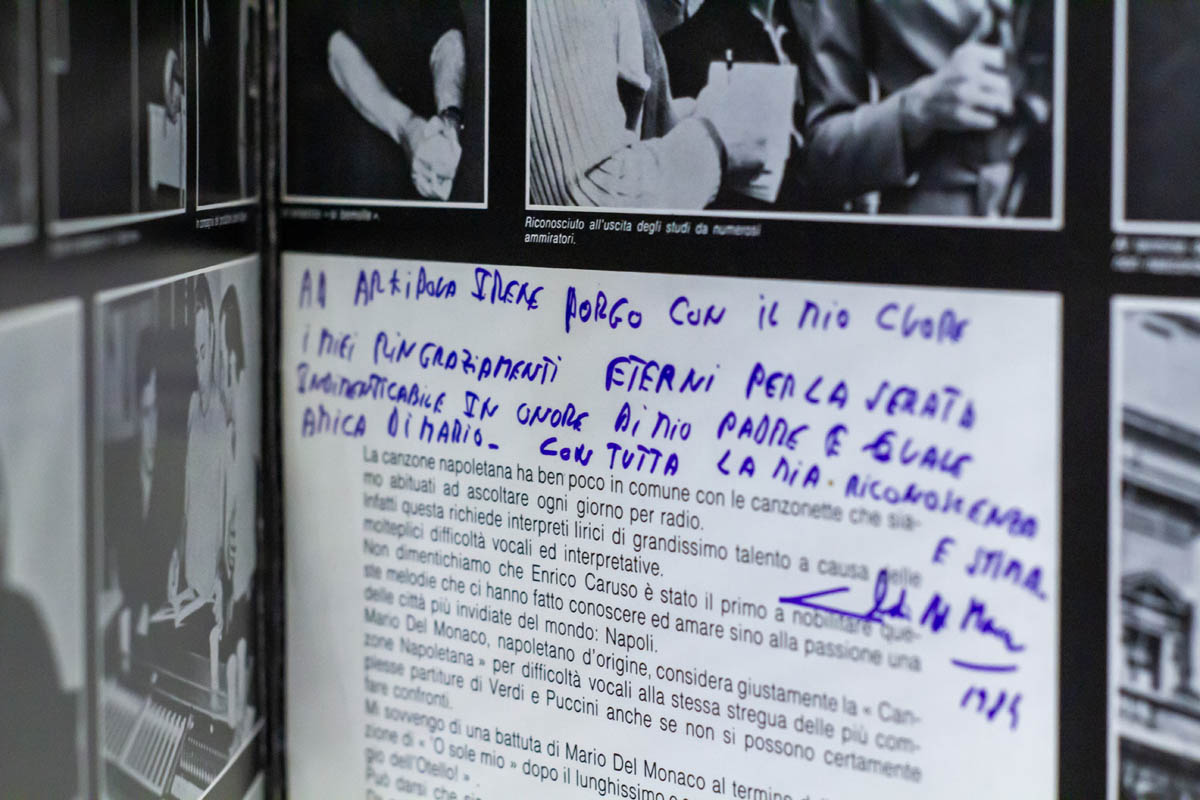 Riconosciuto all'uscita degli studi da numerosi
ammiratori.
IRENE PORGO CON IL MIO CUORE
I MIEI RINGRAZIAMENTI ETERNI PER LA SERATA
INDIMENTICABILE IN ONORE DI MIO PADRE E QUALE
AMICA DI MARIO_ CON TUTTA LA MIA RICONOSCENZA
E STIMA.
La canzone napoletana ha ben poco in comune con le canzonette che sia-
mo abituati ad ascoltare ogni giorno per radio.
Infatti questa richiede interpreti lirici di grandissimo talento a causa delle
molteplici difficoltà vocali ed interpretative.
Non dimentichiamo che Enrico Caruso è stato il primo a nobilitare que-
ste melodie che ci hanno fatto conoscere ed amare sino alla passione una
delle città più invidiate del mondo: Napoli.
Mario Del Monaco, napoletano d'origine, considera giustamente la « Can-
zone Napoletana » per difficoltà vocali alla stessa stregua delle più com-
plesse partiture di Verdi e Puccini anche se non si possono certamente
fare confronti.
Mi sovvengo di una battuta di Mario Del Monaco al termine
zione di « 'O sole mio » dopo il lunghissimo
gio dell'Otello! ».
Può darsi che